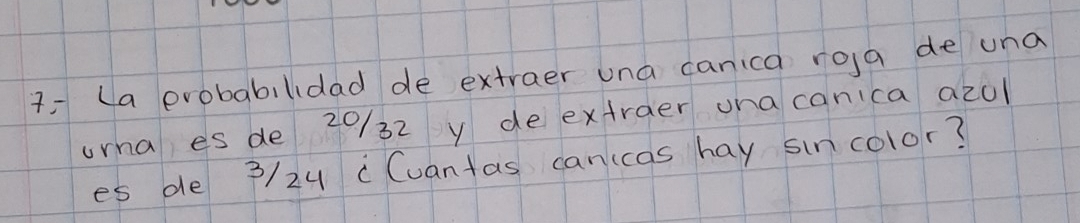 7.- La probabilidad de extraer una canica roja de una
urna es de 20/32 y de extraer una canica azul
es de 3/24 ¿Cuantas canicas hay sin color?